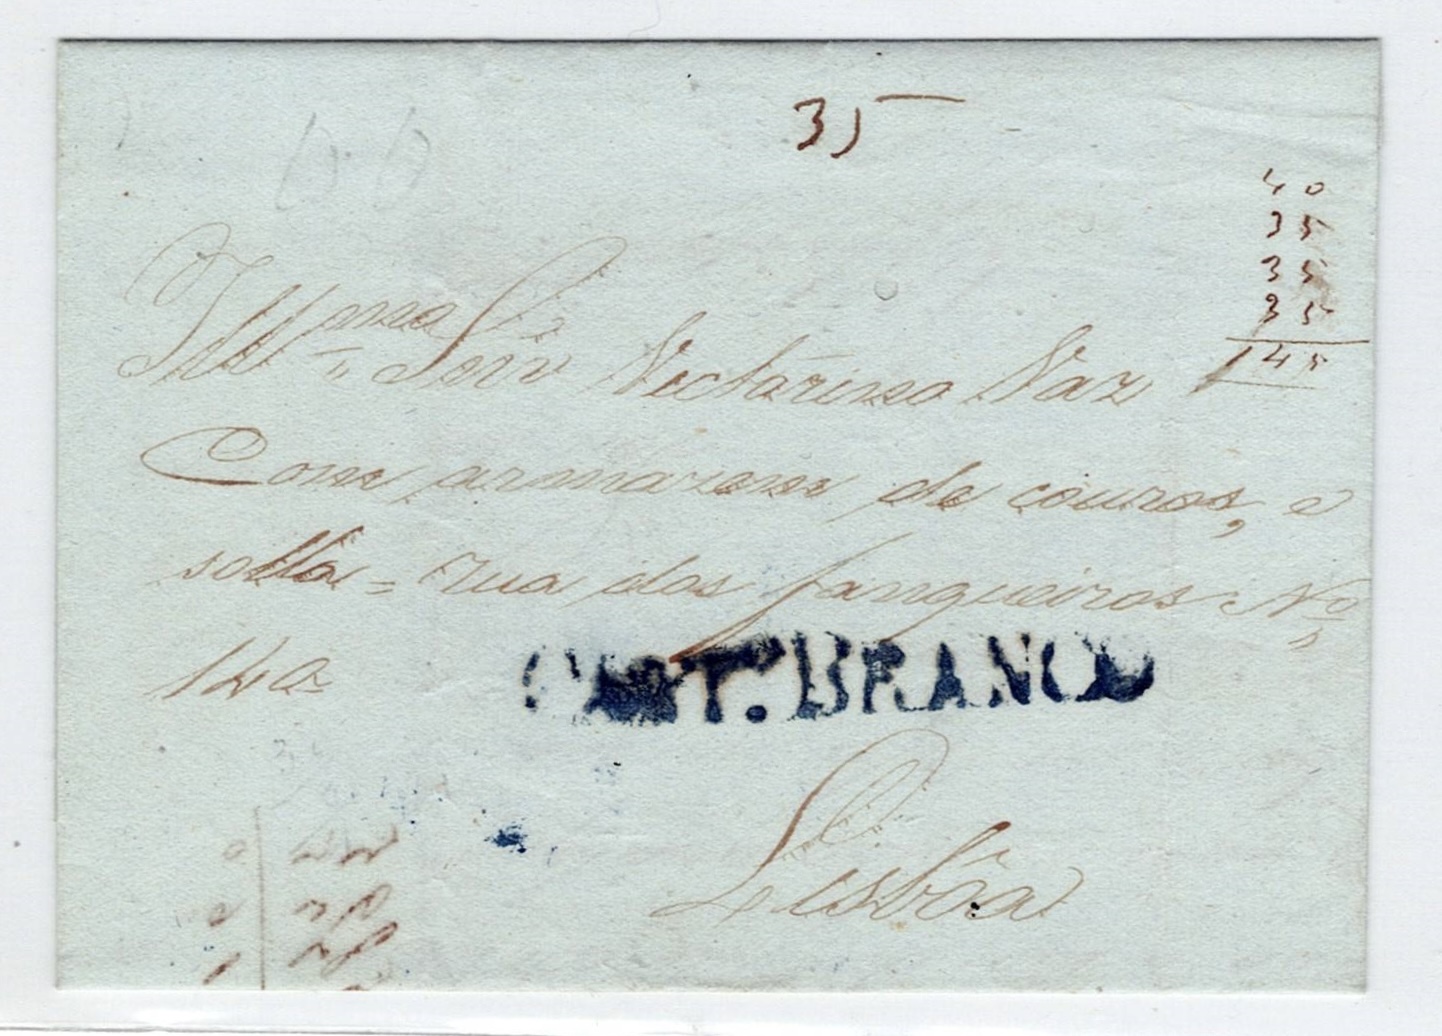 35
40
35
35
35
145
Illmo Snr Nectarino Vaz
Com armazem de couros, e
solla = rua dos fanqueiros No
140
CAST. BRANCO
Lisbôa